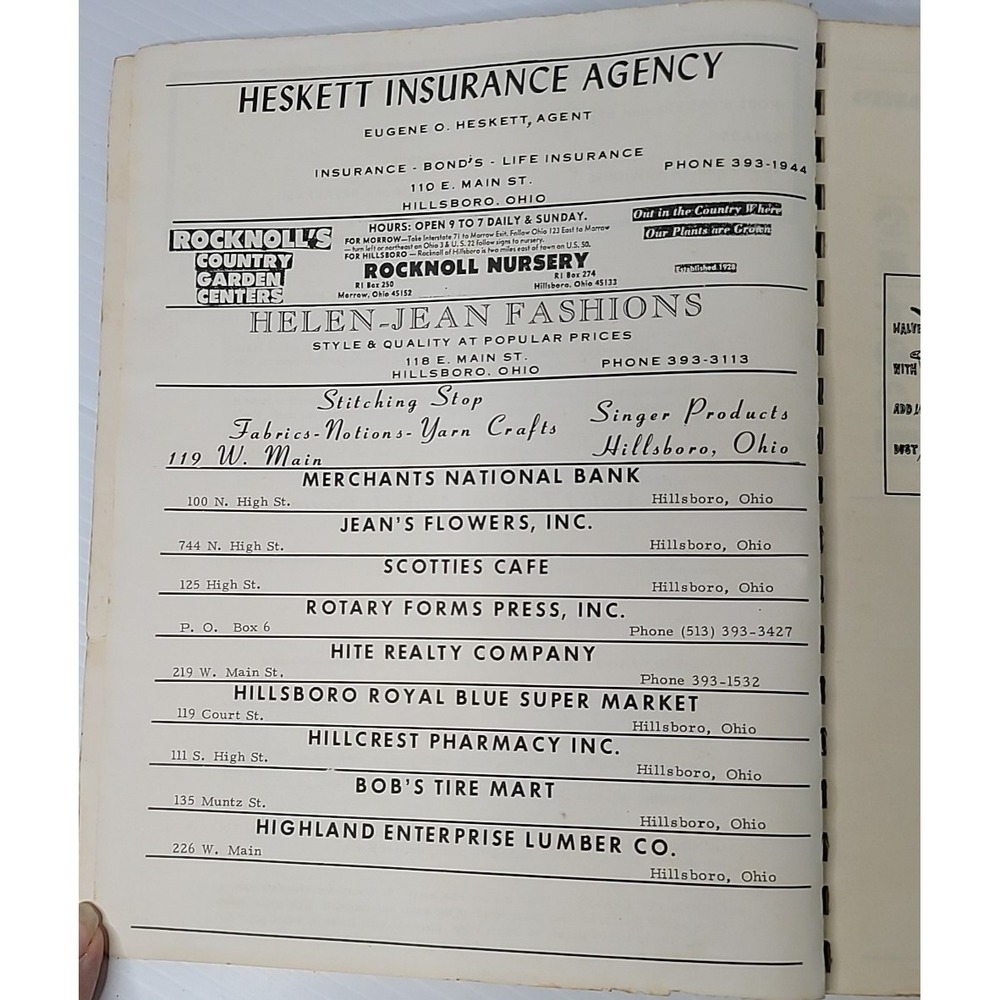 HESKETT INSURANCE AGENCY
EUGENE O. HESKETT, AGENT
INSURANCE - BOND'S - LIFE INSURANCE
PHONE 393-1944
110 E. MAIN ST.
HILLSBORO, OHIO
ROCKNOLL'S
COUNTRY
GARDEN
CENTERS
HOURS: OPEN 9 TO 7 DAILY & SUNDAY.
FOR MORROW—Take Interstate 71 to Morrow Exit. Follow Ohio 123 East to Morrow
— turn left or northeast on Ohio 3 & U. S. 22 follow signs to nursery.
FOR HILLSBORO — Rocknoll of Hillsboro is two miles east of town on U.S. 50.
ROCKNOLL NURSERY
R1 Box 250
Morrow, Ohio 45152
R1 Box 274
Hillsboro, Ohio 45133
Out in the Country Where
Our Plants are Grown
Established 1928
HELEN-JEAN FASHIONS
STYLE & QUALITY AT POPULAR PRICES
118 E. MAIN ST.
HILLSBORO. OHIO
PHONE 393-3113
Stitching Stop
Fabrics-Notions-Yarn Crafts
119 W. Main
Singer Products
Hillsboro, Ohio
MERCHANTS NATIONAL BANK
100 N. High St. Hillsboro, Ohio
JEAN'S FLOWERS, INC.
744 N. High St. Hillsboro, Ohio
SCOTTIES CAFE
125 High St. Hillsboro, Ohio
ROTARY FORMS PRESS, INC.
P. O. Box 6 Phone (513) 393-3427
HITE REALTY COMPANY
219 W. Main St. Phone 393-1532
HILLSBORO ROYAL BLUE SUPER MARKET
119 Court St. Hillsboro, Ohio
HILLCREST PHARMACY INC.
111 S. High St. Hillsboro, Ohio
BOB'S TIRE MART
135 Muntz St. Hillsboro, Ohio
HIGHLAND ENTERPRISE LUMBER CO.
226 W. Main Hillsboro, Ohio
WITH
ADD